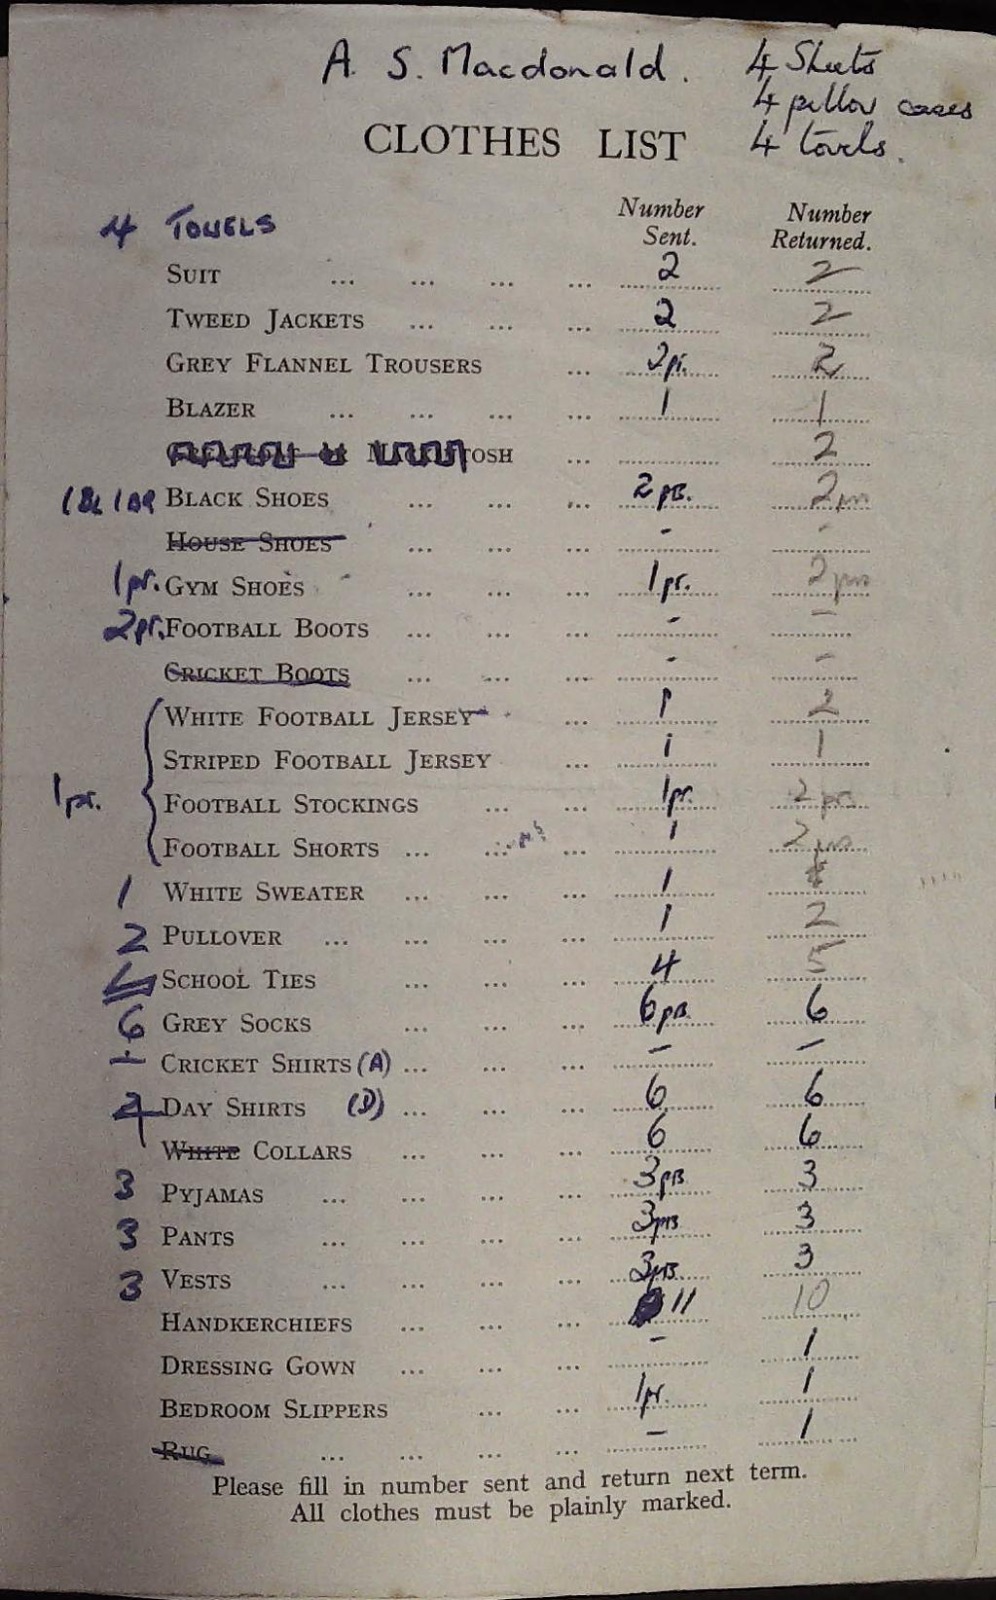 A. S. Macdonald. 4 Sheets
4 pillow cases
CLOTHES LIST 4 towels.
4 TOWELS Number Sent. Number Returned.
SUIT ... ... ... ... 2 2
TWEED JACKETS ... ... ... 2 2
GREY FLANNEL TROUSERS ... 2pr. 2
BLAZER ... ... ... ... 1 1
TOSH ... 2
BLACK SHOES ... ... ... 2 prs. 2
HOUSE SHOES ... ... ... - -
1pr. GYM SHOES ... ... ... 1pr. 2
2pr. FOOTBALL BOOTS ... ... ... - -
CRICKET BOOTS ... ... ... - -
WHITE FOOTBALL JERSEY ... 1 2
STRIPED FOOTBALL JERSEY ... 1 1
1pr. FOOTBALL STOCKINGS ... ... 1pr. 2 pr.
FOOTBALL SHORTS ... ... ... 1 2
1 WHITE SWEATER ... ... ... 1
2 PULLOVER ... ... ... ... 1 2
SCHOOL TIES ... ... ... 4 5
6 GREY SOCKS ... ... ... 6 prs. 6
- CRICKET SHIRTS (A) ... ... ... - -
DAY SHIRTS (D) ... ... ... 6 6
WHITE COLLARS ... ... ... 6 6
3 PYJAMAS ... ... ... ... 3 prs 3
3 PANTS ... ... ... ... 3 prs 3
3 VESTS ... ... ... ... 3 prs. 3
HANDKERCHIEFS ... ... ... 11 10
DRESSING GOWN ... ... ... - 1
BEDROOM SLIPPERS ... ... 1pr. 1
RUG ... ... ... ... - 1
Please fill in number sent and return next term.
All clothes must be plainly marked.